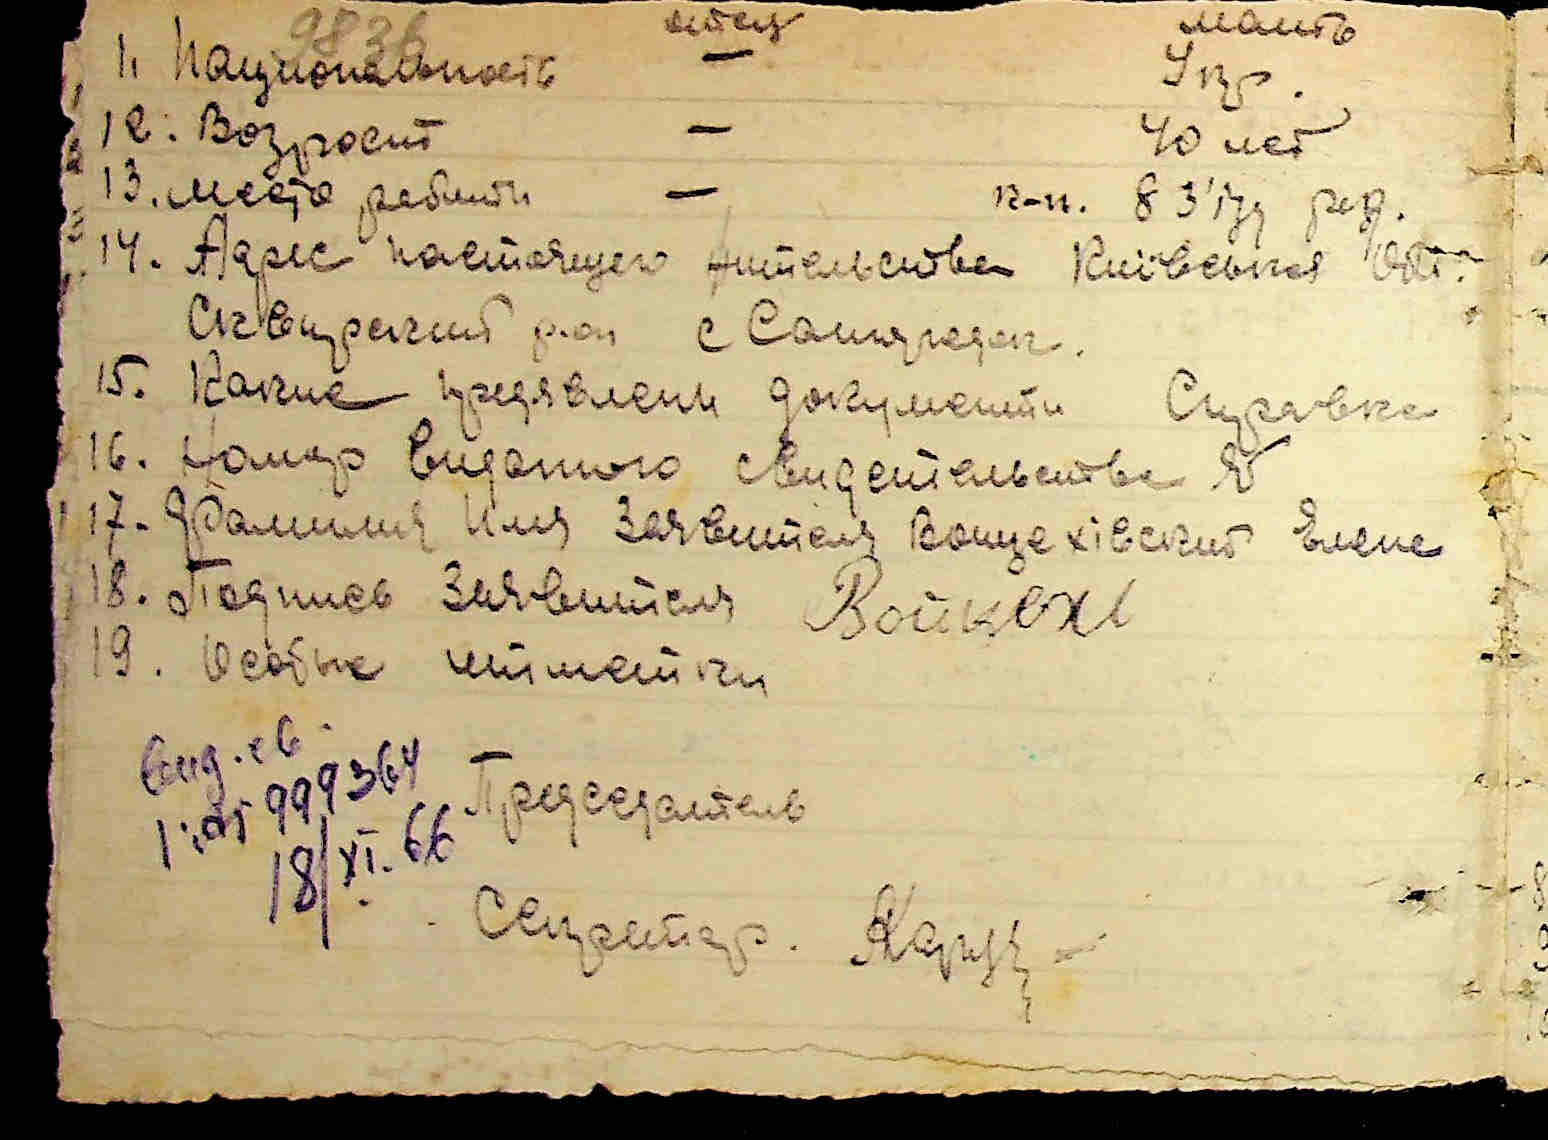 9836
отец мать
11. Национальность — Укр.
12. Возраст — 40 лет
13. место работи — к-п. 8 З'їзд
14. Адрес настоящего жительства Київська Обл.
Сквирский р-он с
15. Какие предявлени документи Справка
16. Номер виданого свидетельства №
17. Фамилия Имя Заявителя Войцехівский Елена
18. Подпись Заявителя Войцехі
19. Особые отметки
вид. св.
999364
18/XI. 66
Председатель
Секретар.